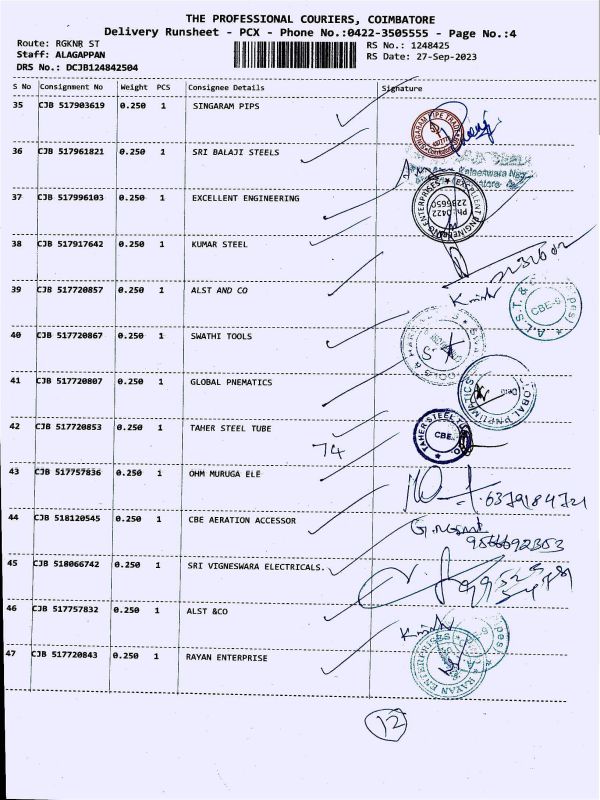 THE PROFESSIONAL COURIERS, COIMBATORE
Delivery Runsheet - PCX - Phone No.:0422-3505555 - Page No.:4
Route: RGKNR ST
RS No.: 1248425
Staff: ALAGAPPAN
RS Date: 27-Sep-2023
DRS No.: DCJB124842504
S No Consignment No Weight PCS Consignee Details Signature
35 CJB 517903619 0.250 1 SINGARAM PIPS
36 CJB 517961821 0.250 1 SRI BALAJI STEELS
37 CJB 517996103 0.250 1 EXCELLENT ENGINEERING
38 CJB 517917642 0.250 1 KUMAR STEEL
39 CJB 517720857 0.250 1 ALST AND CO
40 CJB 517720867 0.250 1 SWATHI TOOLS
41 CJB 517720807 0.250 1 GLOBAL PNEMATICS
42 CJB 517720853 0.250 1 TAHER STEEL TUBE
TAHER STEEL
CBE
74
43 CJB 517757836 0.250 1 OHM MURUGA ELE
6379184721
44 CJB 518120545 0.250 1 CBE AERATION ACCESSOR
45 CJB 518066742 0.250 1 SRI VIGNESWARA ELECTRICALS.
46 CJB 517757832 0.250 1 ALST &CO
47 CJB 517720843 0.250 1 RAYAN ENTERPRISE
RAYAN ENTERPRISES
12